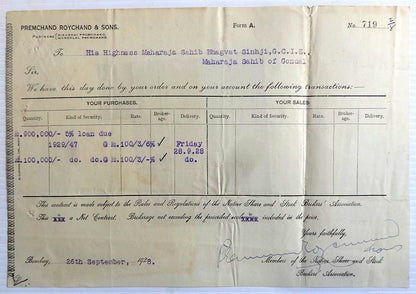 PREMCHAND ROYCHAND & SONS.
Form A.
No. 719
PARTNERS
To His Highness Maharaja Sahib Bhagvat Sinhji, G.C.I.E.,
Maharaja Sahib of Gondal
Sir,
We have this day done by your order and on your account the following transactions:
YOUR PURCHASES.
YOUR SALES
Quantity. Kind of Security. Rate. Broker-age. Delivery. Quantity. Kind of Security. Rate. Broker-age. Delivery.
900,000/- 5% loan due
1929/47 @ Rs.100/3/6% Friday
28.9.28
100,000/- do. do. @ Rs.100/3/-% do.
This contract is made subject to the Rules and Regulations of the Native Share and Stock Brokers' Association.
This is a Net Contract. Brokerage not exceeding the prescribed scale is included in the price.
Yours faithfully,
Members of the Native Share and Stock
Brokers' Association.
Bombay, 26th September, 1928.